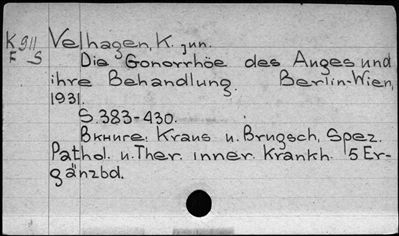 K 911
F S
Velhagen, K. jun.
Die Gonorrhöe des Auges und
ihre Behandlung. Berlin-Wien,
1931.
S. 383-430.
Вкниге: Kraus u. Brugsch, Spez.
Pathol. u. Ther. inner. Krankh. 5 Er-
gänzbd.